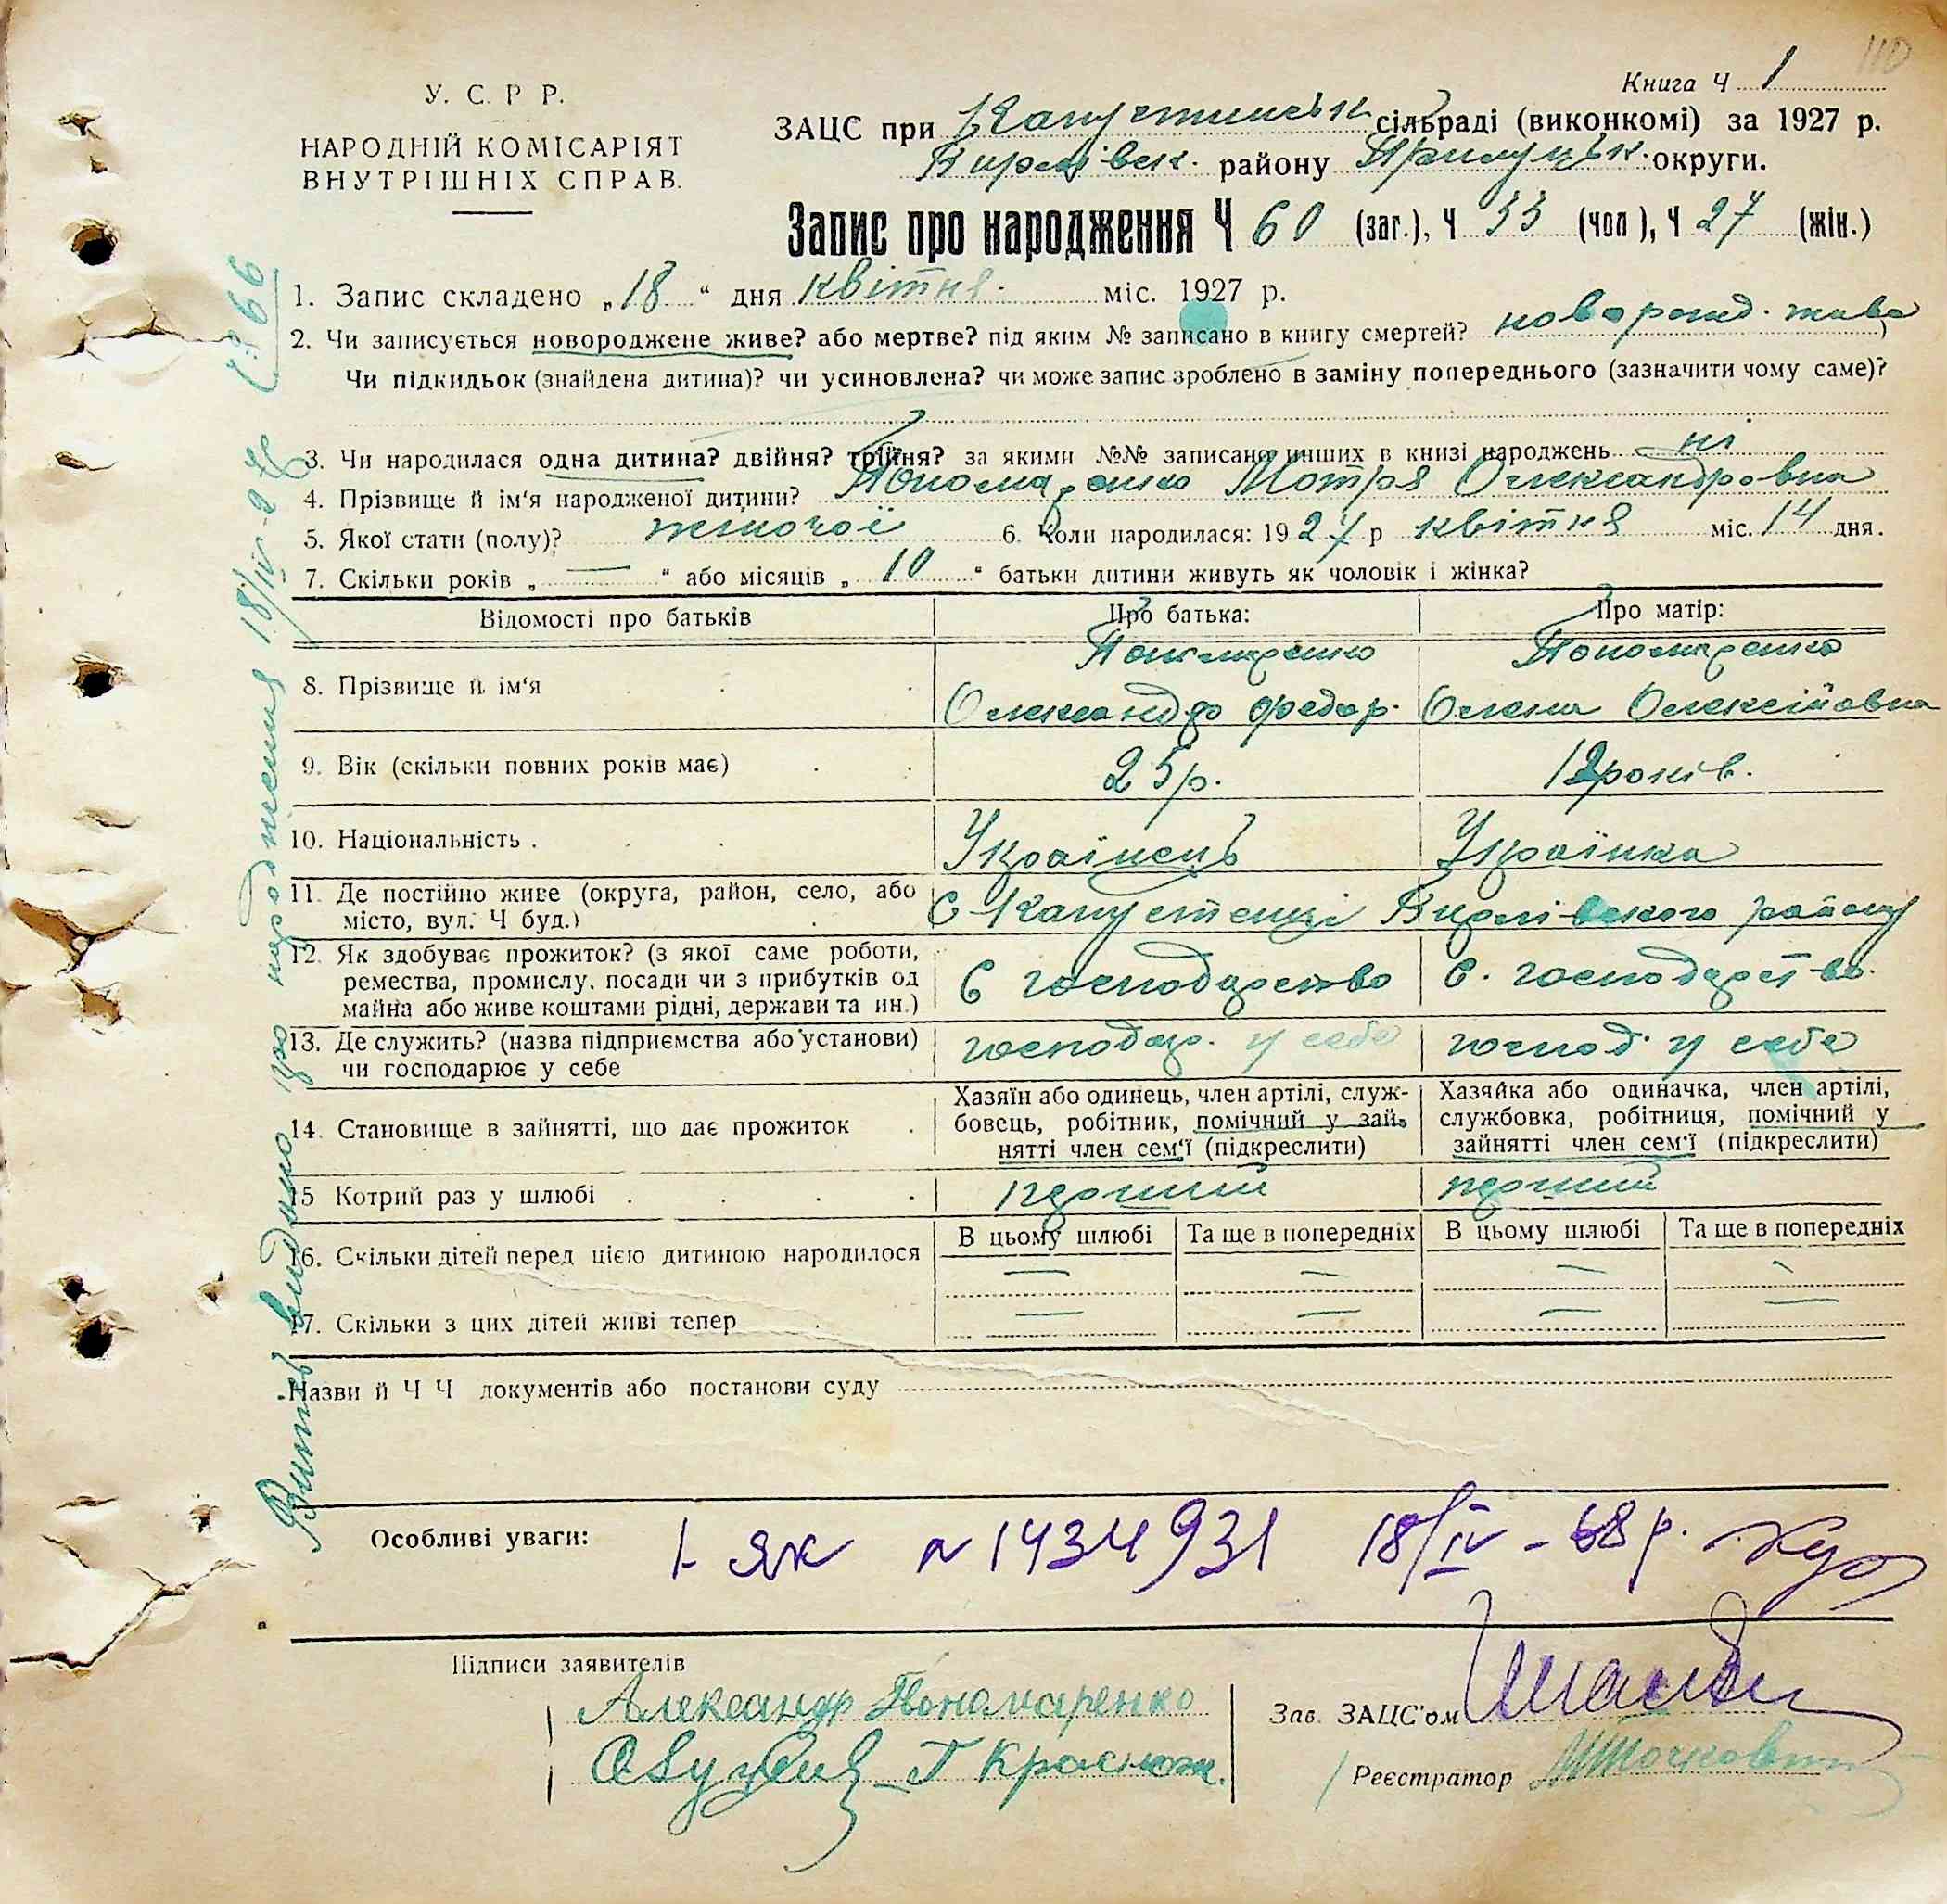 110
Книга Ч 1
У. С. Р. Р.
НАРОДНІЙ КОМІСАРІЯТ
ВНУТРІШНІХ СПРАВ.
ЗАЦС при Капустинськ. сільраді (виконкомі) за 1927 р.
району Прилуцьк. округи.
Запис про народження Ч 60 (заг.), Ч 33 (чол ), Ч 27 (жін.)
1. Запис складено „18 “ дня квітня міс. 1927 р.
2. Чи записується новороджене живе? або мертве? під яким № записано в книгу смертей? новорожд. жива
Чи підкидьок (знайдена дитина)? чи усиновлена? чи може запис зроблено в заміну попереднього (зазначити чому саме)?
3. Чи народилася одна дитина? двійня? трійня? за якими №№ записано инших в книзі народжень ні
4. Прізвище й ім'я народженої дитини? Пономаренко Мотря Олександровна
5. Якої стати (полу)? жіночої 6. Коли народилася: 1927 р квітня міс. 14 дня.
7. Скільки років „ — “ або місяців „ 10 “ батьки дитини живуть як чоловік і жінка?
Відомості про батьків Про батька: Про матір:
8. Прізвище й ім'я Пономаренко Олександр Федор. Пономаренко Олена Олексійовна
9. Вік (скільки повних років має) 25 р. років.
10. Національність . Українець Українка
11. Де постійно живе (округа, район, село, або
місто, вул. Ч буд.) С Капустенці району
12. Як здобуває прожиток? (з якої саме роботи,
ремества, промислу, посади чи з прибутків од
майна або живе коштами рідні, держави та ин.) С господарство С. господарство.
13. Де служить? (назва підприємства або установи)
чи господарює у себе господар. у себе господ. у себе
14. Становище в зайнятті, що дає прожиток
Хазяїн або одинець, член артілі, служ-
бовець, робітник, помічний у зай-
нятті член сем'ї (підкреслити)
Хазяйка або одиначка, член артілі,
службовка, робітниця, помічний у
зайнятті член сем'ї (підкреслити)
15 Котрий раз у шлюбі перший перший
В цьому шлюбі Та ще в попередніх В цьому шлюбі Та ще в попередніх
16. Скільки дітей перед цією дитиною народилося — — — —
17. Скільки з цих дітей живі тепер — — — —
Назви й Ч Ч документів або постанови суду
Особливі уваги: 1- як N 1434931 18/IV - 68 р.
Підписи заявителів
Александр Пономаренко
Зав. ЗАЦС'ом
Реєстратор
Витяг видано про народження 18/IV-27р